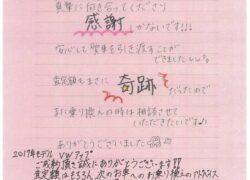 真摯に向き合ってくださり
感謝しかないです!!!
安心して愛車を引き渡すことが
できましたww。
査定額もまさに奇跡だったので
また乗り換えの時は相談させて
いただきたいです♪
ありがとうございました
2017年モデル VW アップ
ご成約頂き誠にありがとうございます!!
査定額はもちろん、次のお車へのお乗り換えの